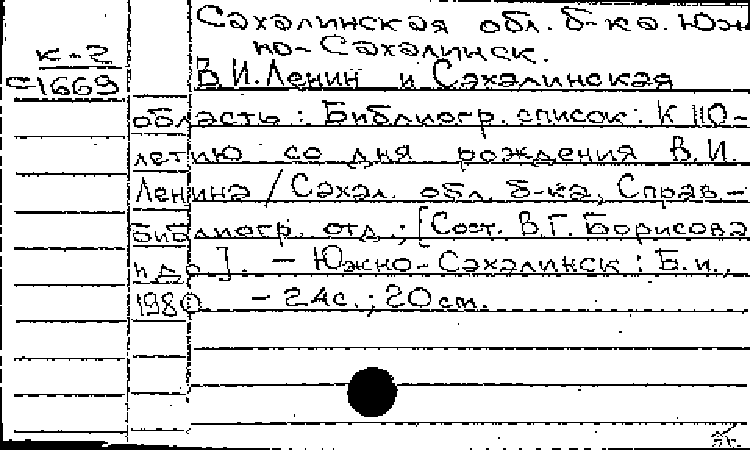 Сахалинская обл. б-ка. Юж
но-Сахалинск.
К-2
С-1669
В.И.Ленин и Сахалинская
область: Библиогр. список: К 110-
летию со дня рождения В.И.
Ленина / Сахал. обл. б-ка, Справ.-
библиогр. отд.; [Сост. В.Г. Борисова
и др.]. - Южно-Сахалинск: Б.и.,
1980. - 24с.; 20см.